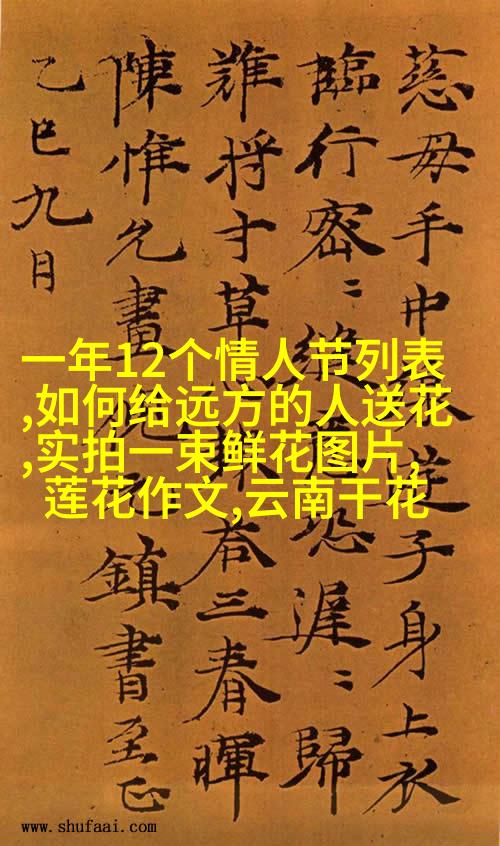 慈母手中遊子身上衣
臨行密〻縫恐遲〻歸
難将寸草答三春暉
陳惟允畫鎮書至正
乙巳九月
一年12个情人节列表
,如何给远方的人送花
,实拍一束鲜花图片,
莲花作文,云南干花
www.shufaai.com